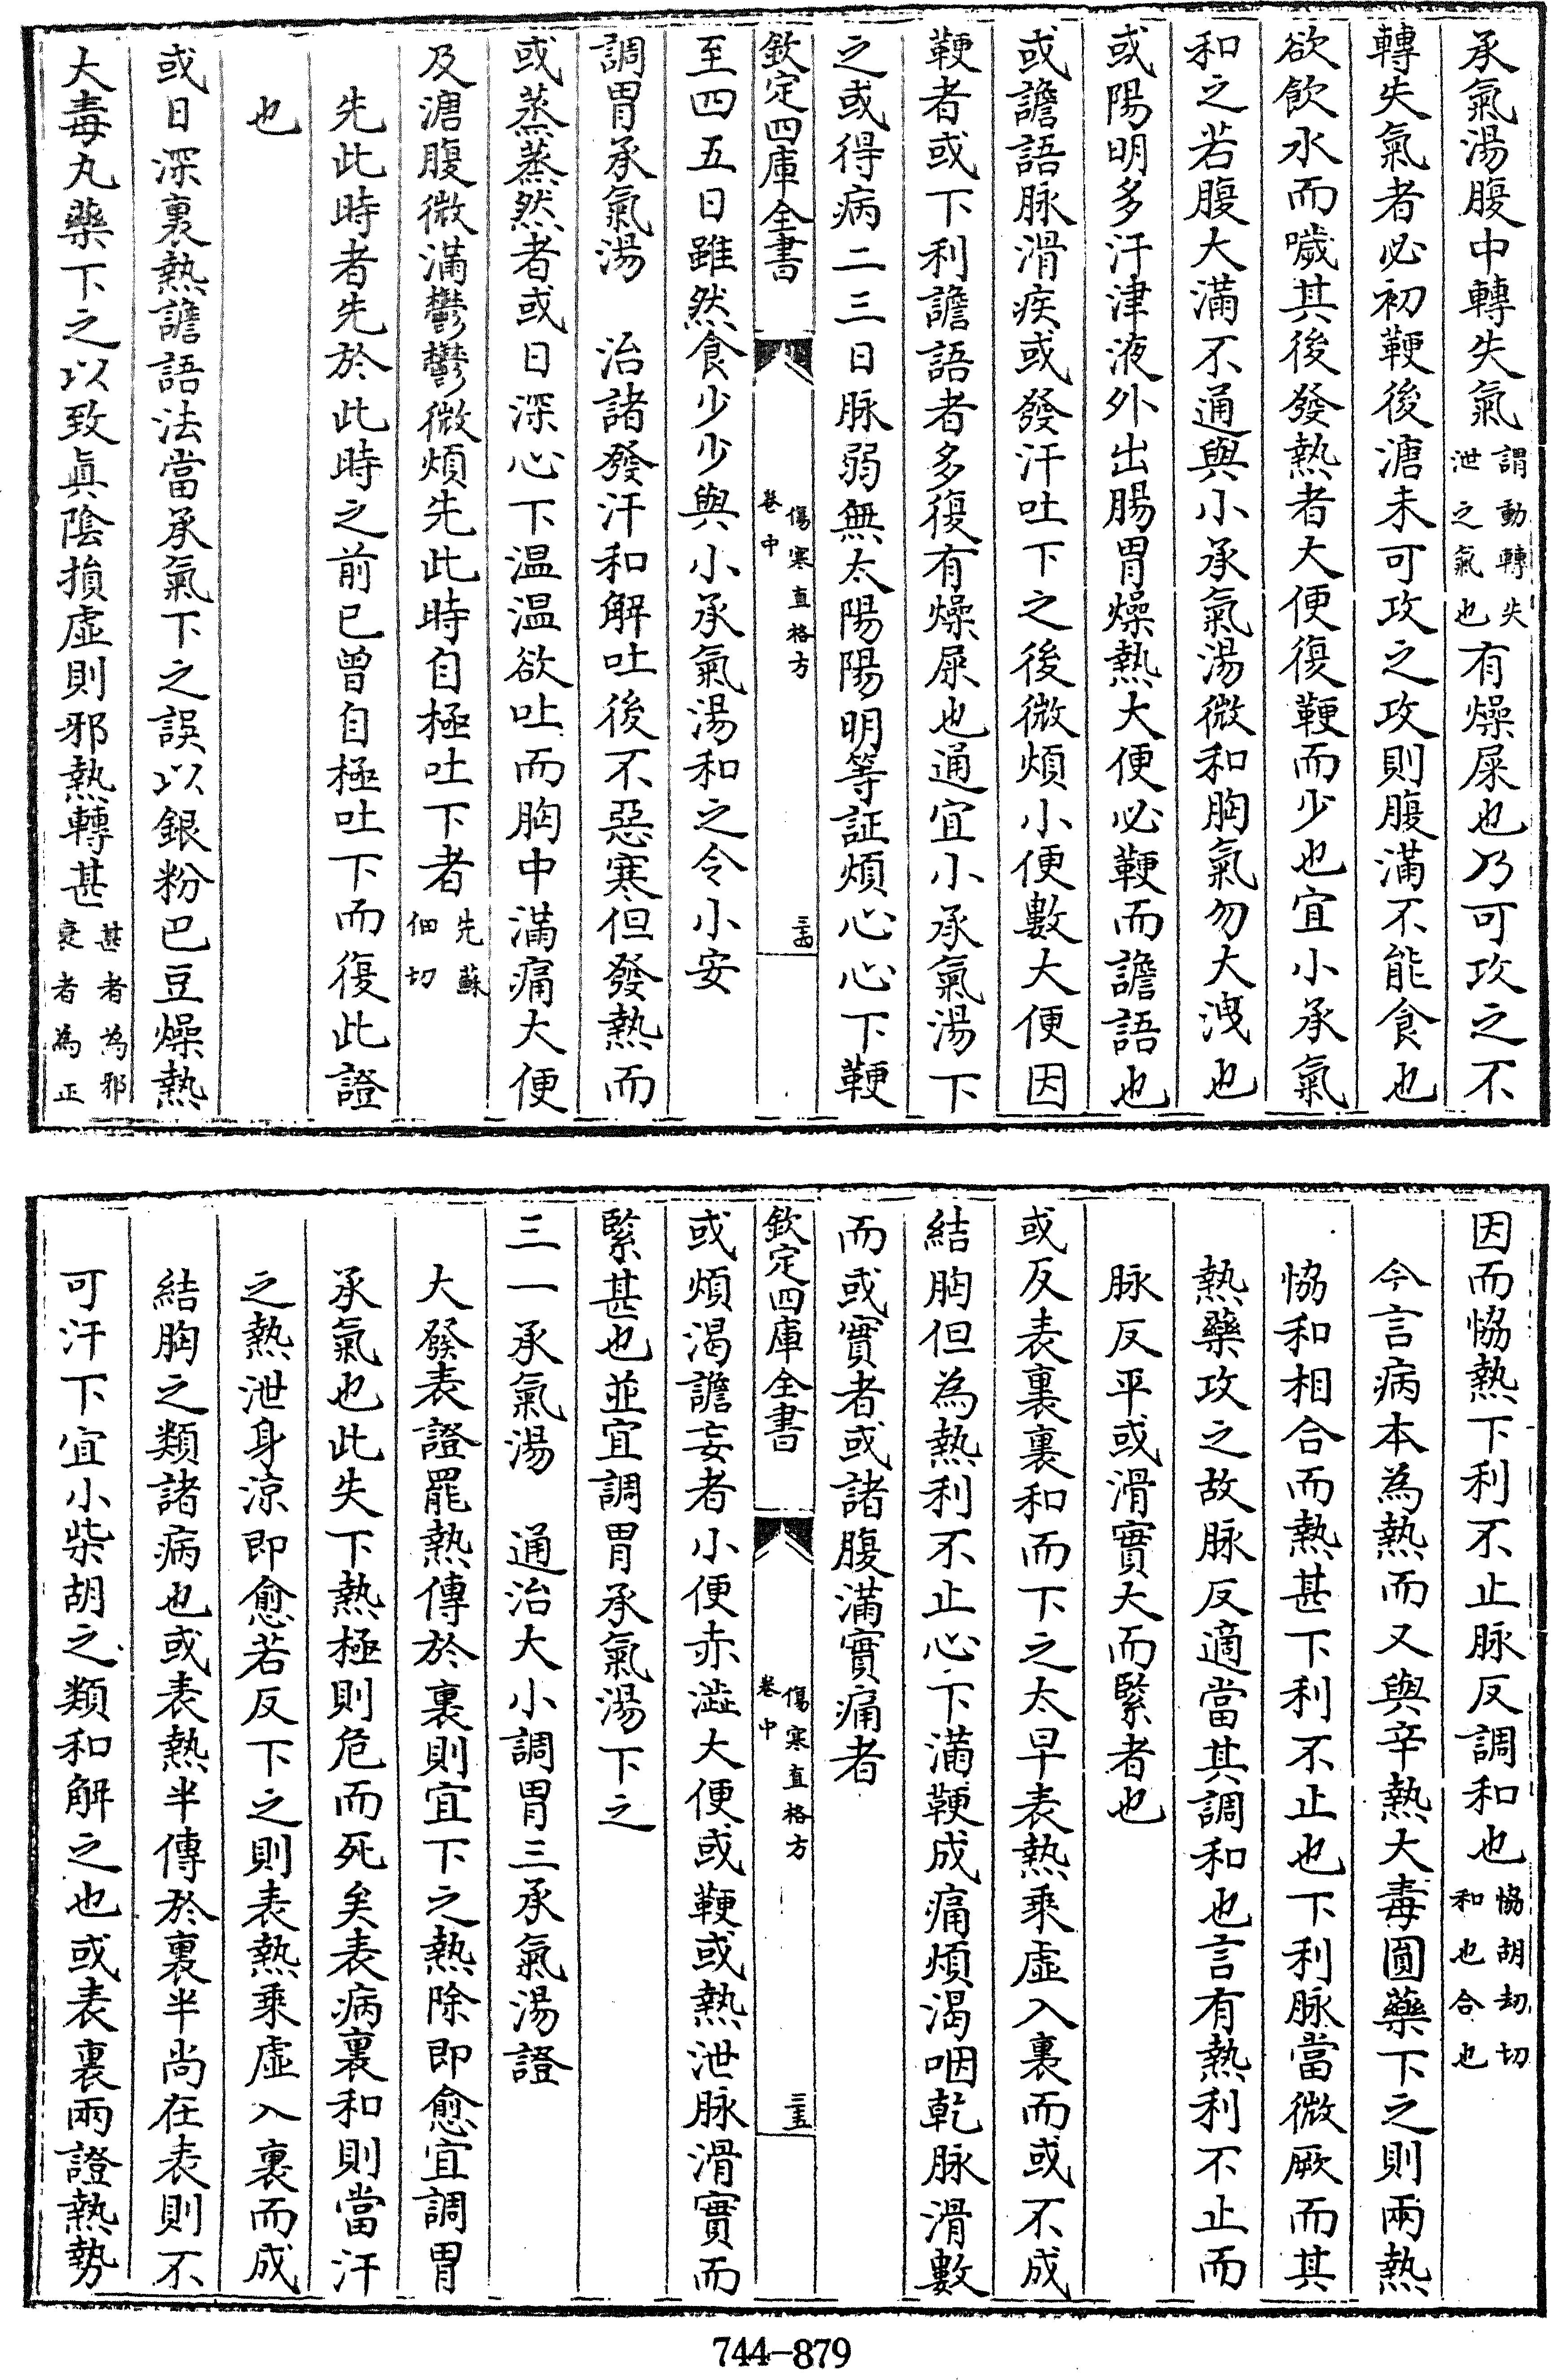 承氣湯腹中轉失氣謂動轉失泄之氣也有燥屎也乃可攻之不
轉失氣者必初鞕後溏未可攻之攻則腹滿不能食也
欲飲水而噦其後發熱者大便復鞕而少也宜小承氣
和之若腹大滿不通與小承氣湯微和胸氣勿大洩也
或陽明多汗津液外出腸胃燥熱大便必鞕而譫語也
或譫語脉滑疾或發汗吐下之後微煩小便數大便因
鞕者或下利譫語者多復有燥屎也通宜小承氣湯下
之或得病二三日脉弱無太陽陽明等証煩心心下鞕
欽定四庫全書
傷寒直格方
卷中
三四
至四五日雖然食少少與小承氣湯和之令小安
調胃承氣湯　治諸發汗和解吐後不惡寒但發熱而
或蒸蒸然者或日深心下温温欲吐而胸中滿痛大便
及溏腹微滿鬱鬱微煩先此時自極吐下者先蘇佃切
先此時者先於此時之前已曾自極吐下而復此證
也
或日深裏熱譫語法當承氣下之誤以銀粉巴豆燥熱
大毒丸藥下之以致眞陰損虛則邪熱轉甚甚者為邪衰者為正
因而恊熱下利不止脉反調和也恊胡刼切和也合也
今言病本為熱而又與辛熱大毒圓藥下之則兩熱
恊和相合而熱甚下利不止也下利脉當微厥而其
熱藥攻之故脉反適當其調和也言有熱利不止而
脉反平或滑實大而緊者也
或反表裏裏和而下之太早表熱乘虛入裏而或不成
結胸但為熱利不止心下滿鞕成痛煩渴咽乾脉滑數
而或實者或諸腹滿實痛者
欽定四庫全書
傷寒直格方
卷中
三五
或煩渴譫妄者小便赤澁大便或鞕或熱泄脉滑實而
緊甚也並宜調胃承氣湯下之
三一承氣湯　通治大小調胃三承氣湯證
大發表證罷熱傳於裏則宜下之熱除即愈宜調胃
承氣也此失下熱極則危而死矣表病裏和則當汗
之熱泄身涼即愈若反下之則表熱乘虛入裏而成
結胸之類諸病也或表熱半傳於裏半尚在表則不
可汗下宜小柴胡之類和解之也或表裏兩證熱勢
744-879